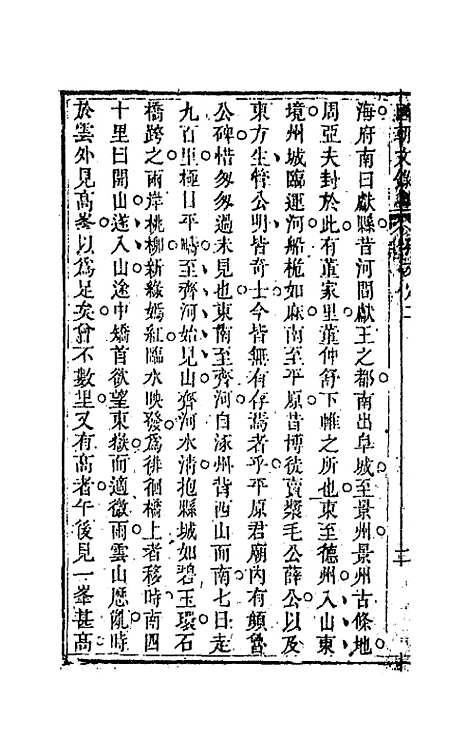 海府南曰獻縣昔河間獻王之都南出阜城至景州景州古條地
周亞夫封於此有董家里董仲舒下帷之所也東至德州入山東
境州城臨運河船桅如麻南至平原昔博徒賣漿毛公薛公以及
東方生管公明皆奇士今皆無有存焉者乎平原君廟內有顏魯
公碑惜匆匆過未見也東南至齊河自涿州背西山而南七日走
九百里極目平疇至齊河始見山齊河水清抱縣城如碧玉環石
橋跨之兩岸桃柳新綠嫣紅臨水映發爲徘徊橋上者移時南四
十里曰開山遂入山途中矯首欲望東嶽而適微雨雲山歷亂時
於雲外見高峯以爲足矣曾不數里又有高者午後見一峯甚高